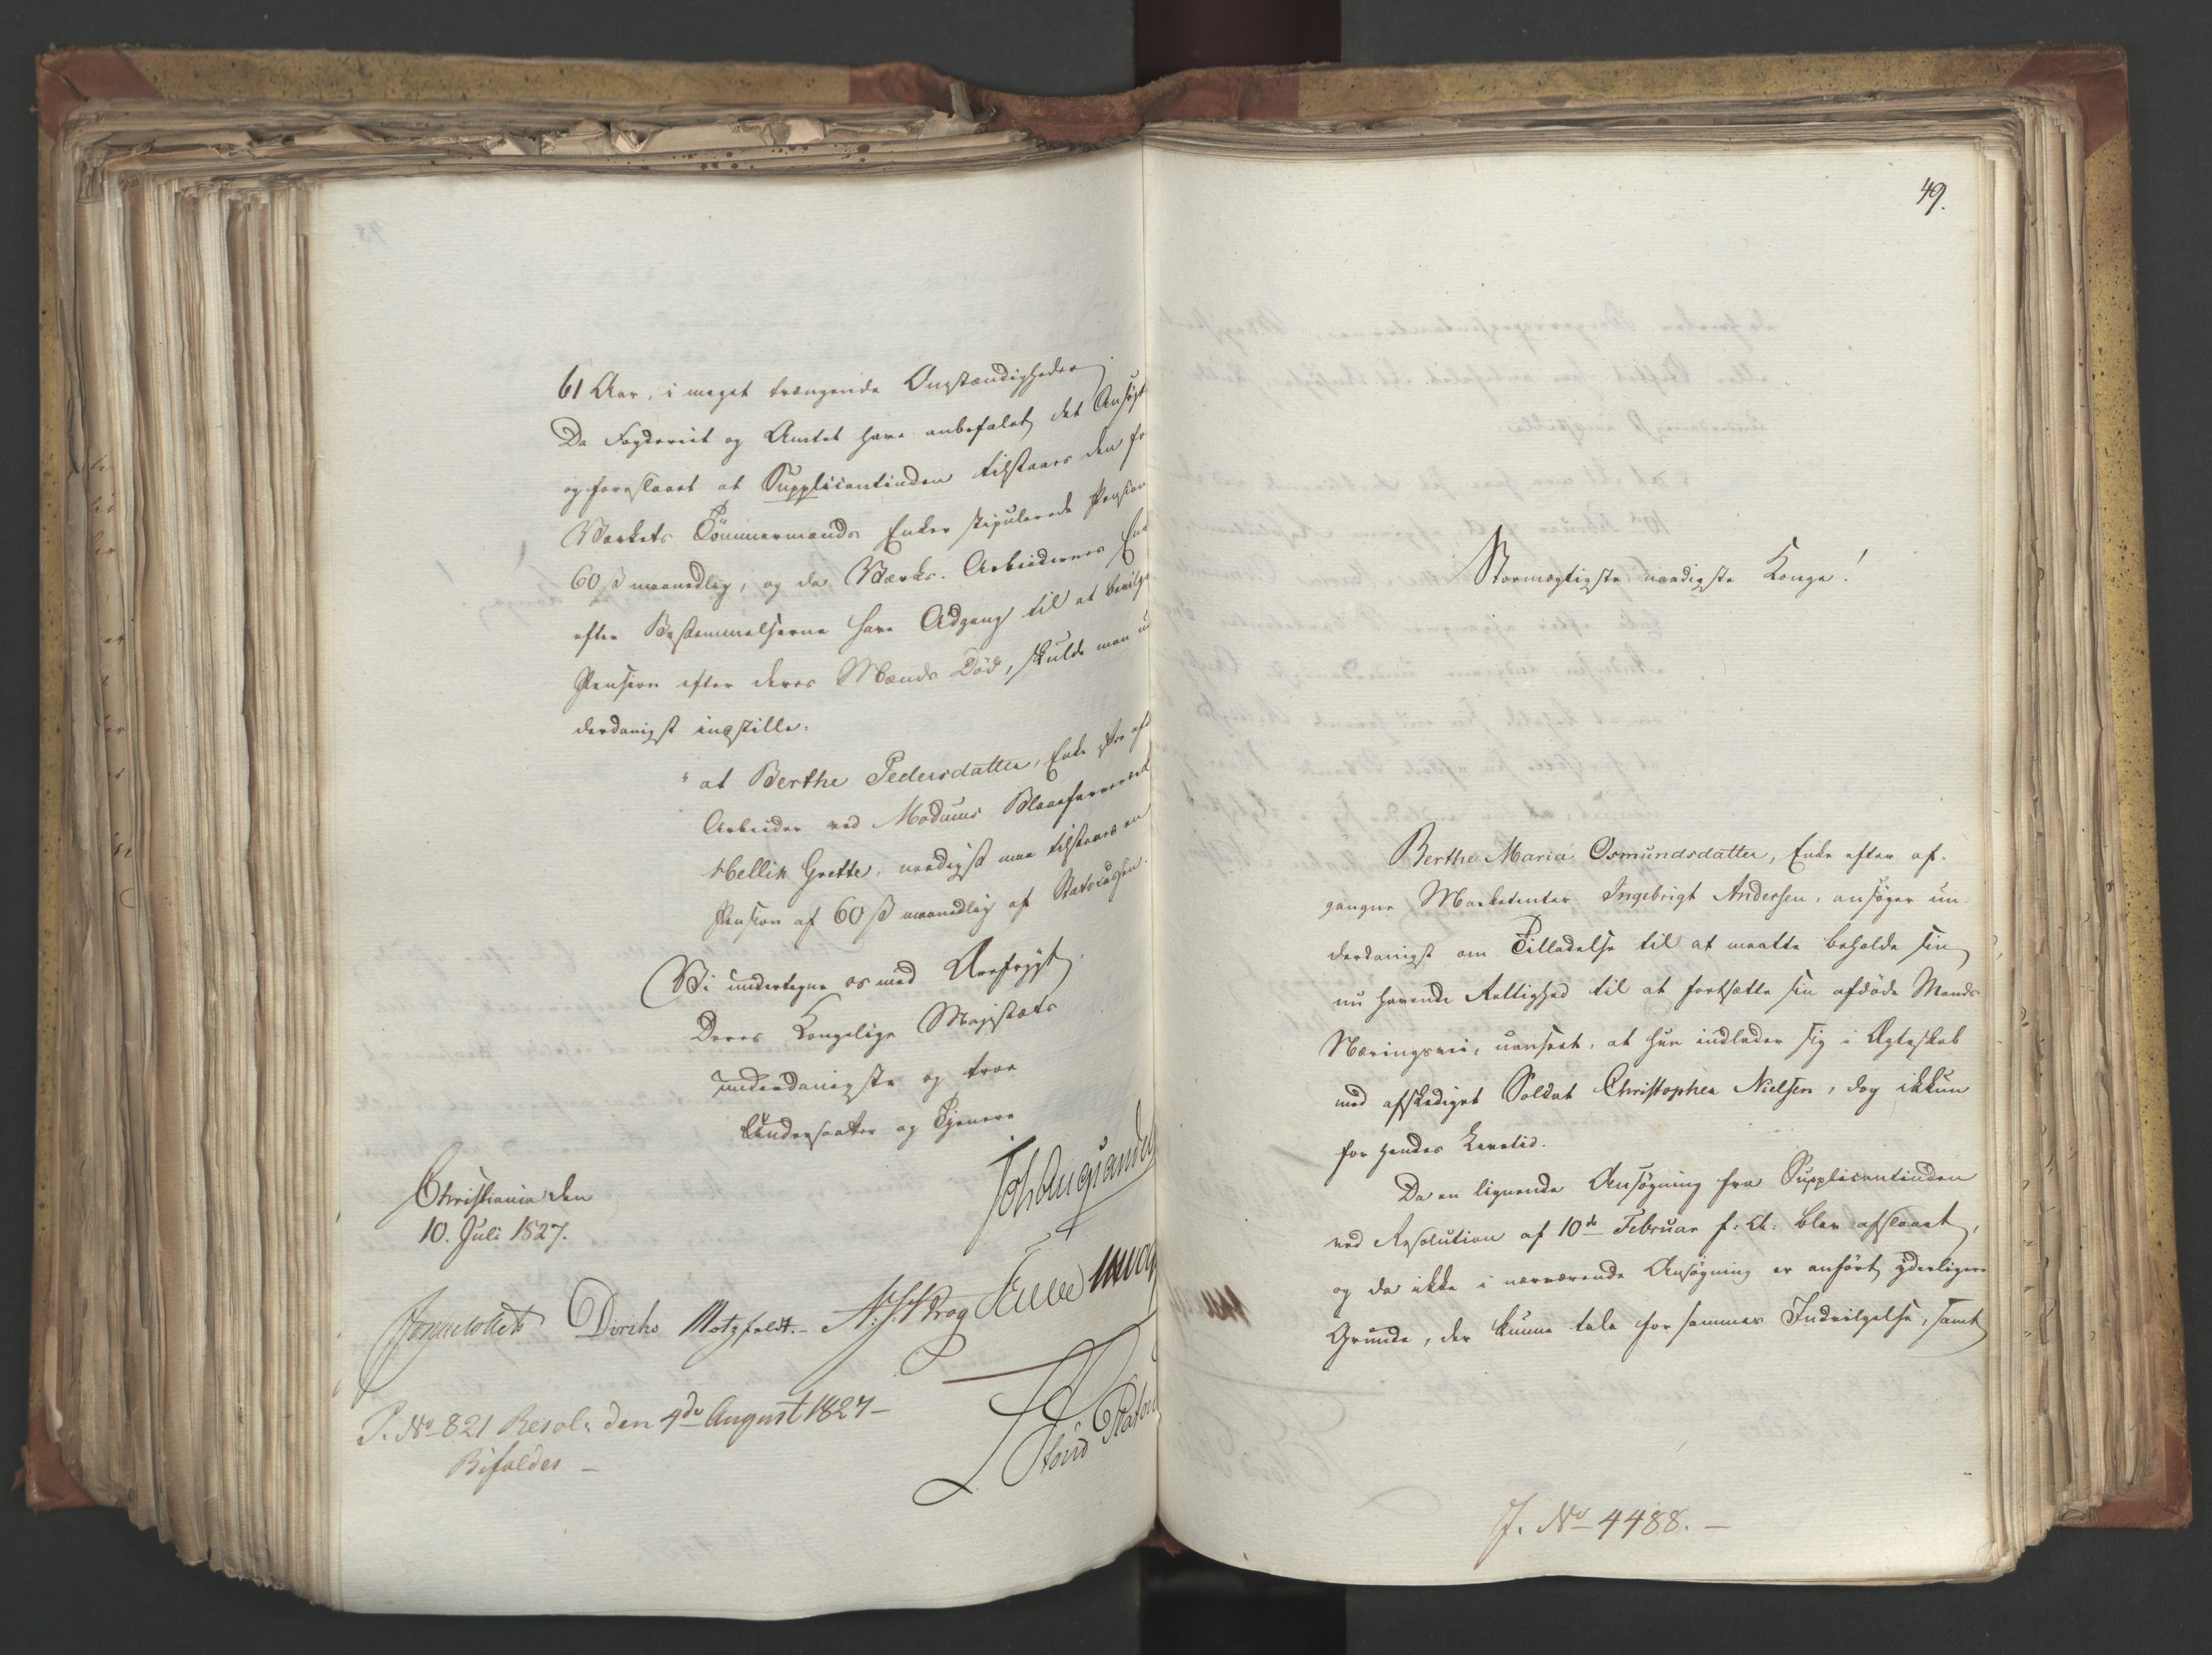 61 Aar, i meget trængende Omstændigheder.
Da Fogderiet og Amtet have anbefalet det Ansøgt
og foreslaaet at Supplicantinden tilstaaes den for
Værkets Tömmermænds Enker stipulerede Pension
60 ß maanedlig, og da Værks-Arbeidernes Enk
efter Bestemmelserne have Adgang til at bevilge
Pension efter deres Mænds Död, skulde man un
derdanigst indstille:
"at Berthe Pedersdatter, Enke efter
Arbeider ved Modums Blaafarveværk
Hellik Grette, naadigst maa tilstaaes en
Pension af 60 ß maanedlig af Statscassen.
Vi undertegne os med Ærefrygt,
Deres Kongelige Majestæts
underdanigste og troe
Undersaatter og Tjenere
Christiania den
10. Juli 1827.
Diriks Motzfeldt.- Krog
P. No 821 Resol: den 4de August 1827 -
Bifaldes -
49.
Stormægtigste naadigste Konge!
Berthe Maria Osmundsdatter, Enke efter af-
gangne Marketenter Ingebrigt Andersen, ansøger un
derdanigst om Tilladelse til at maatte beholde sin
nu havende Rettighed til at fortsætte sin afdöde Mands
Næringsvei, uanseet, at hun indlader sig i Ægteskab
med afskediget Soldat Christopher Nielsen, dog ikkun
for hendes Levetid.
Da en lignende Ansøgning fra Supplicantinden
ved Resolution af 10de Februar f: A: blev afslaaet,
og da ikke i nærværende Ansøgning er anfört yderligere
Grunde, der kunne tale for sammes Indvilgelse, samt
J. No 4488. -